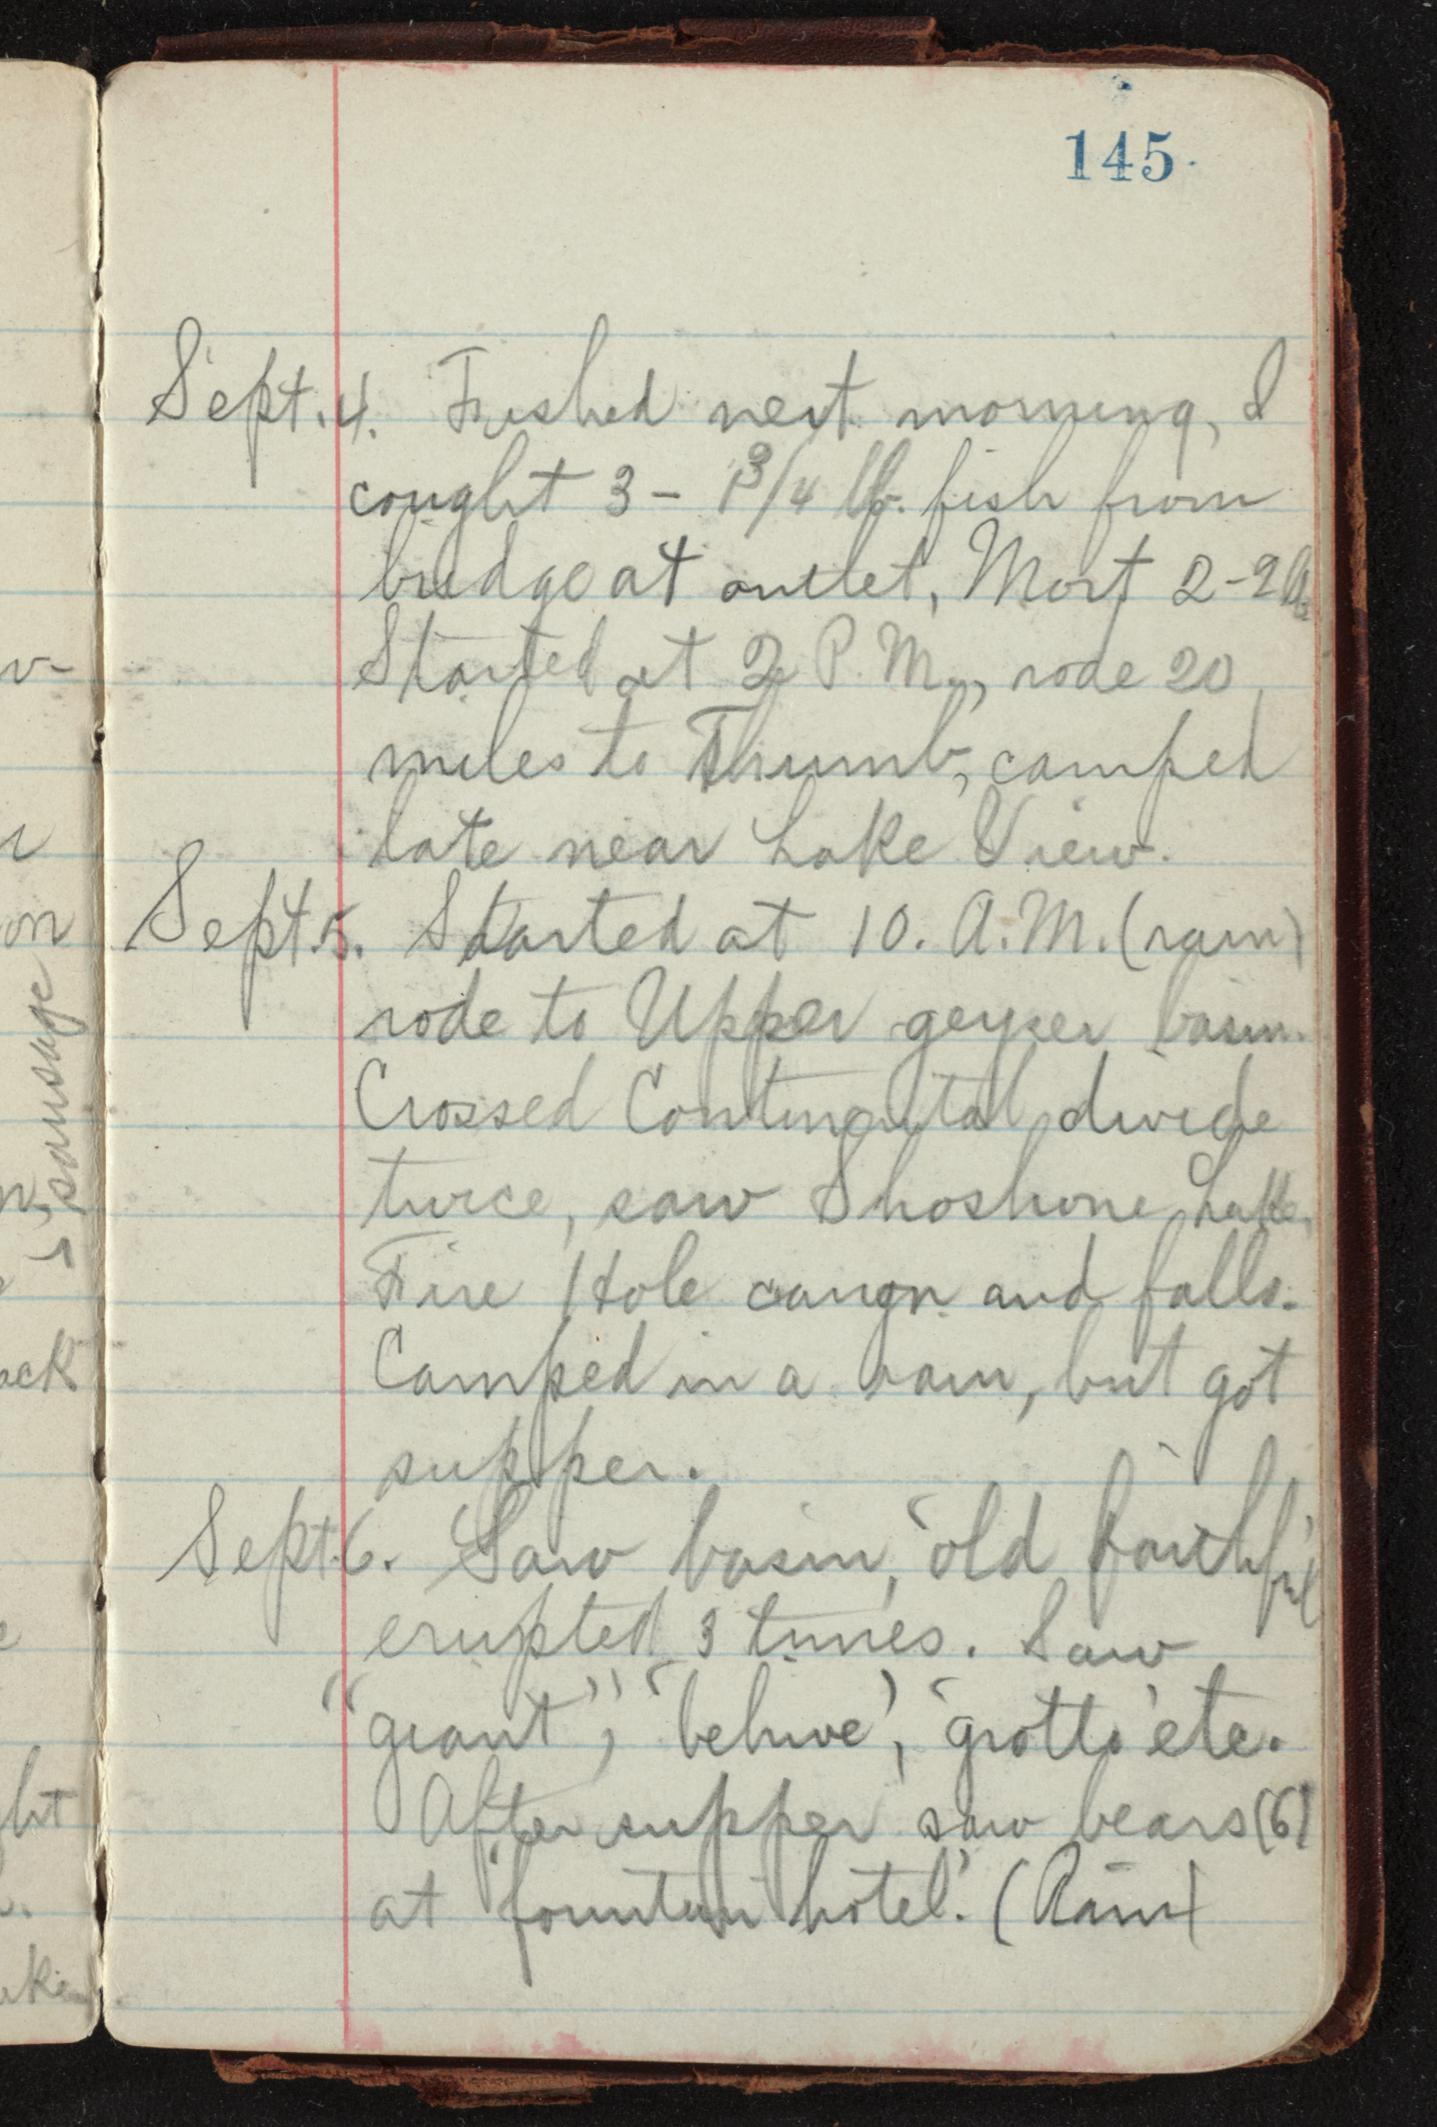 145
Sept. 4. Fished next morning, I
caught 3 - 1 3/4 lb. fish from
bridge at outlet, Mort 2-2 lb
Started at 2 P.M., rode 20
miles to Thumb, camped
late near Lake View.
Sept. 5. Started at 10. A.M. (rain)
rode to Upper geyser basin.
Crossed Continental divide
twice, saw Shoshone Lake,
Fire Hole canyn and falls.
Camped in a rain, but got
supper.
Sept. 6. Saw basin, 'old faithful'
erupted 3 times. Saw
"giant", 'behive', 'grotto' etc.
After supper saw bears (6)
at 'fountain hotel'. (Rain)
on
sausage
ack
ght